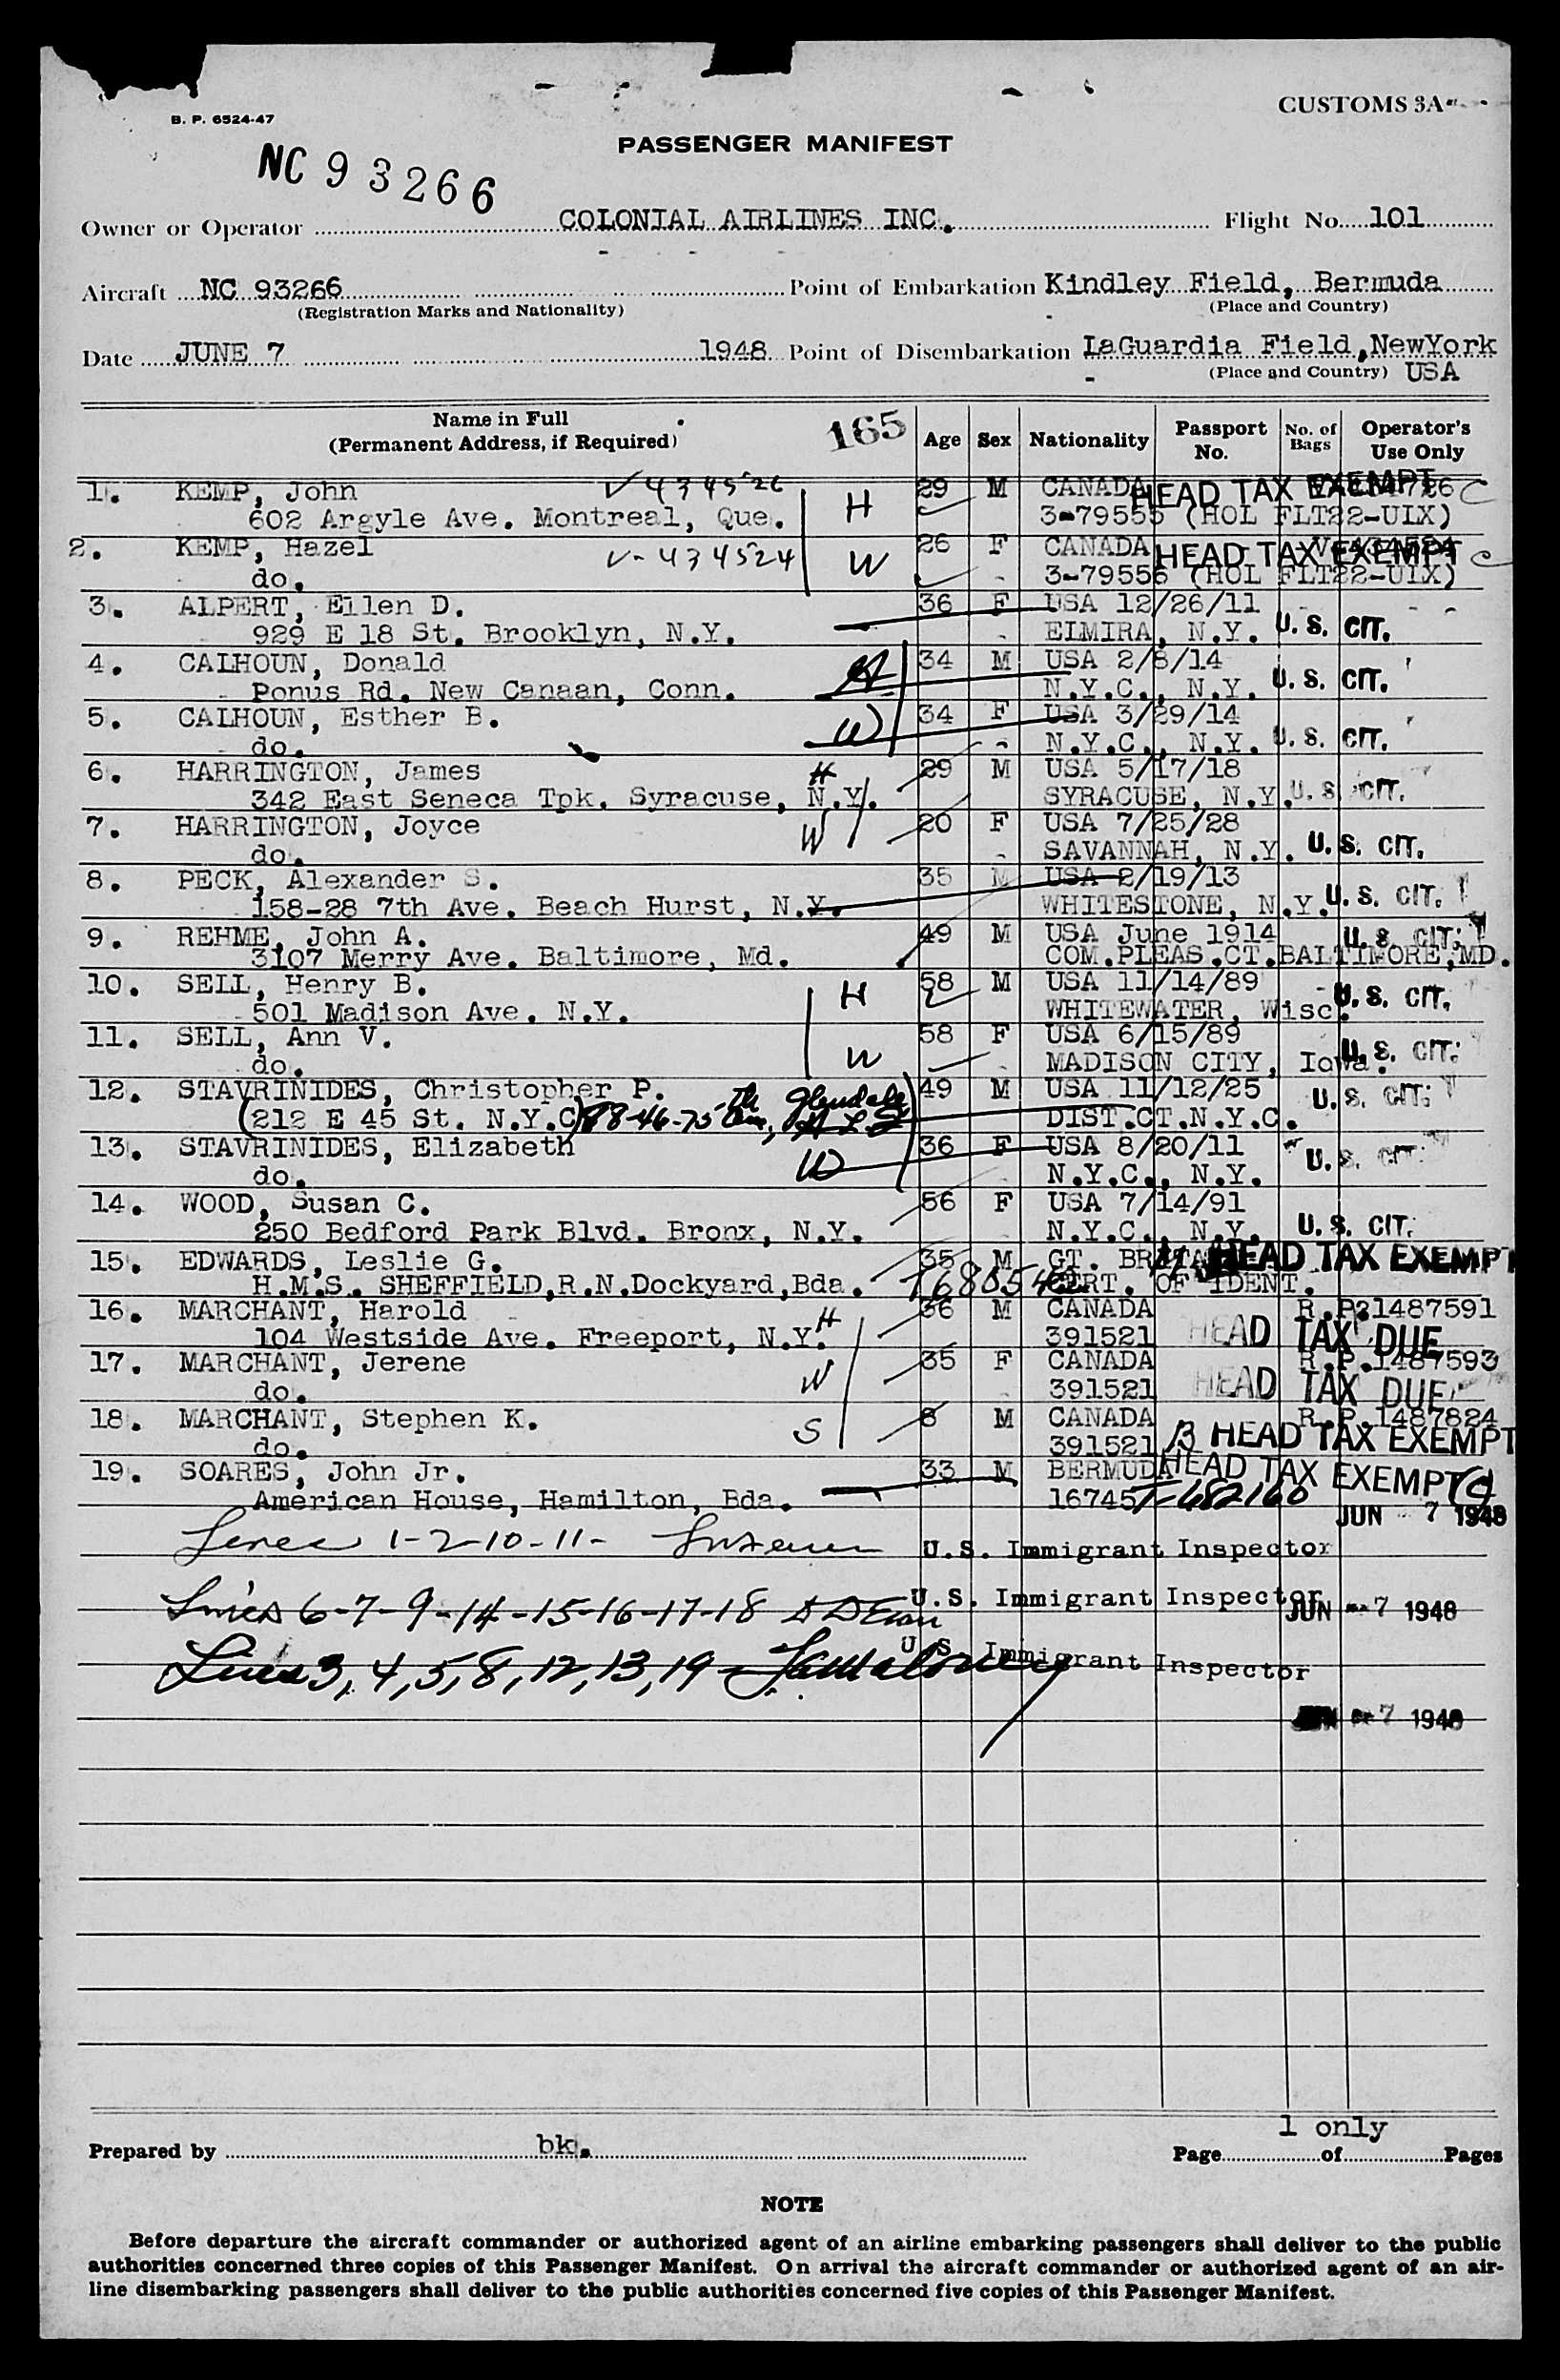 CUSTOMS 3A
B. P. 6524-47
PASSENGER MANIFEST
NC 93266
Owner or Operator COLONIAL AIRLINES INC. Flight No. 101
Aircraft NC 93266 Point of Embarkation Kindley Field, Bermuda
(Registration Marks and Nationality) (Place and Country)
Date JUNE 7 1948 Point of Disembarkation LaGuardia Field,NewYork
(Place and Country) USA
Name in Full 165 Age Sex Nationality Passport No. of Operator's
(Permanent Address, if Required) No. Bags Use Only
1. KEMP, John V 434526 H 29 M CANADA HEAD TAX EXEMPT C
602 Argyle Ave. Montreal, Que. 3-79555 (HOL FLT22-UIX)
2. KEMP, Hazel V-434524 W 26 F CANADA V-434524 HEAD TAX EXEMPT C
do. 3-79556 (HOL FLT22-UIX)
3. ALPERT, Ellen D. 36 F USA 12/26/11
929 E 18 St. Brooklyn, N.Y. ELMIRA, N.Y. U.S. CIT.
4. CALHOUN, Donald H 34 M USA 2/8/14
Ponus Rd. New Canaan, Conn. N.Y.C., N.Y. U.S. CIT.
5. CALHOUN, Esther B. W 34 F USA 3/29/14
do. N.Y.C., N.Y. U.S. CIT.
6. HARRINGTON, James H 29 M USA 5/17/18
342 East Seneca Tpk. Syracuse, N.Y. SYRACUSE, N.Y. U.S. CIT.
7. HARRINGTON, Joyce W 20 F USA 7/25/28
do. SAVANNAH, N.Y. U.S. CIT.
8. PECK, Alexander S. 35 M USA 2/19/13
158-28 7th Ave. Beach Hurst, N.Y. WHITESTONE, N.Y. U.S. CIT.
9. REHME, John A. 49 M USA June 1914 U.S. CIT.
3107 Merry Ave. Baltimore, Md. COM.PLEAS.CT.BALTIMORE,MD.
10. SELL, Henry B. H 58 M USA 11/14/89 U.S. CIT.
501 Madison Ave. N.Y. WHITEWATER, Wisc.
11. SELL, Ann V. W 58 F USA 6/15/89 U.S. CIT.
do. MADISON CITY, Iowa.
12. STAVRINIDES, Christopher P. 49 M USA 11/12/25 U.S. CIT.
(212 E 45 St. N.Y.C) 88-46-75th Ave, Glendale L.I. DIST.CT.N.Y.C.
13. STAVRINIDES, Elizabeth W 36 F USA 8/20/11 U.S. CIT.
do. N.Y.C., N.Y.
14. WOOD, Susan C. 56 F USA 7/14/91
250 Bedford Park Blvd. Bronx, N.Y. N.Y.C., N.Y. U.S. CIT.
15. EDWARDS, Leslie G. 35 M GT. BRITAIN HEAD TAX EXEMPT
H.M.S. SHEFFIELD,R.N.Dockyard,Bda. CERT. OF IDENT.
16. MARCHANT, Harold H 36 M CANADA R.P.1487591
104 Westside Ave. Freeport, N.Y. 391521 HEAD TAX DUE
17. MARCHANT, Jerene W 35 F CANADA R.P.1487593
do. 391521 HEAD TAX DUE
18. MARCHANT, Stephen K. S 8 M CANADA R.P.1487824
do. 391521 B HEAD TAX EXEMPT
19. SOARES, John Jr. 33 M BERMUDA HEAD TAX EXEMPT
American House, Hamilton, Bda. 16745 T-682160
JUN 7 1948
Lines 1-2-10-11- U.S. Immigrant Inspector
Lines 6-7-9-14-15-16-17-18 U.S. Immigrant Inspector JUN 7 1948
Lines 3, 4, 5, 8, 12, 13, 19 U.S. Immigrant Inspector
JUN 7 1948
Prepared by bk. Page 1 only of Pages
NOTE
Before departure the aircraft commander or authorized agent of an airline embarking passengers shall deliver to the public
authorities concerned three copies of this Passenger Manifest. On arrival the aircraft commander or authorized agent of an air-
line disembarking passengers shall deliver to the public authorities concerned five copies of this Passenger Manifest.